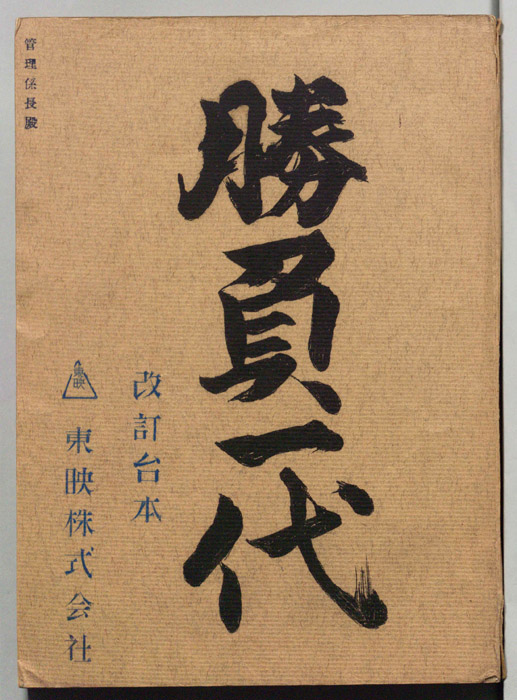 管理係長殿
勝負一代
改訂台本
東映
東映株式会社